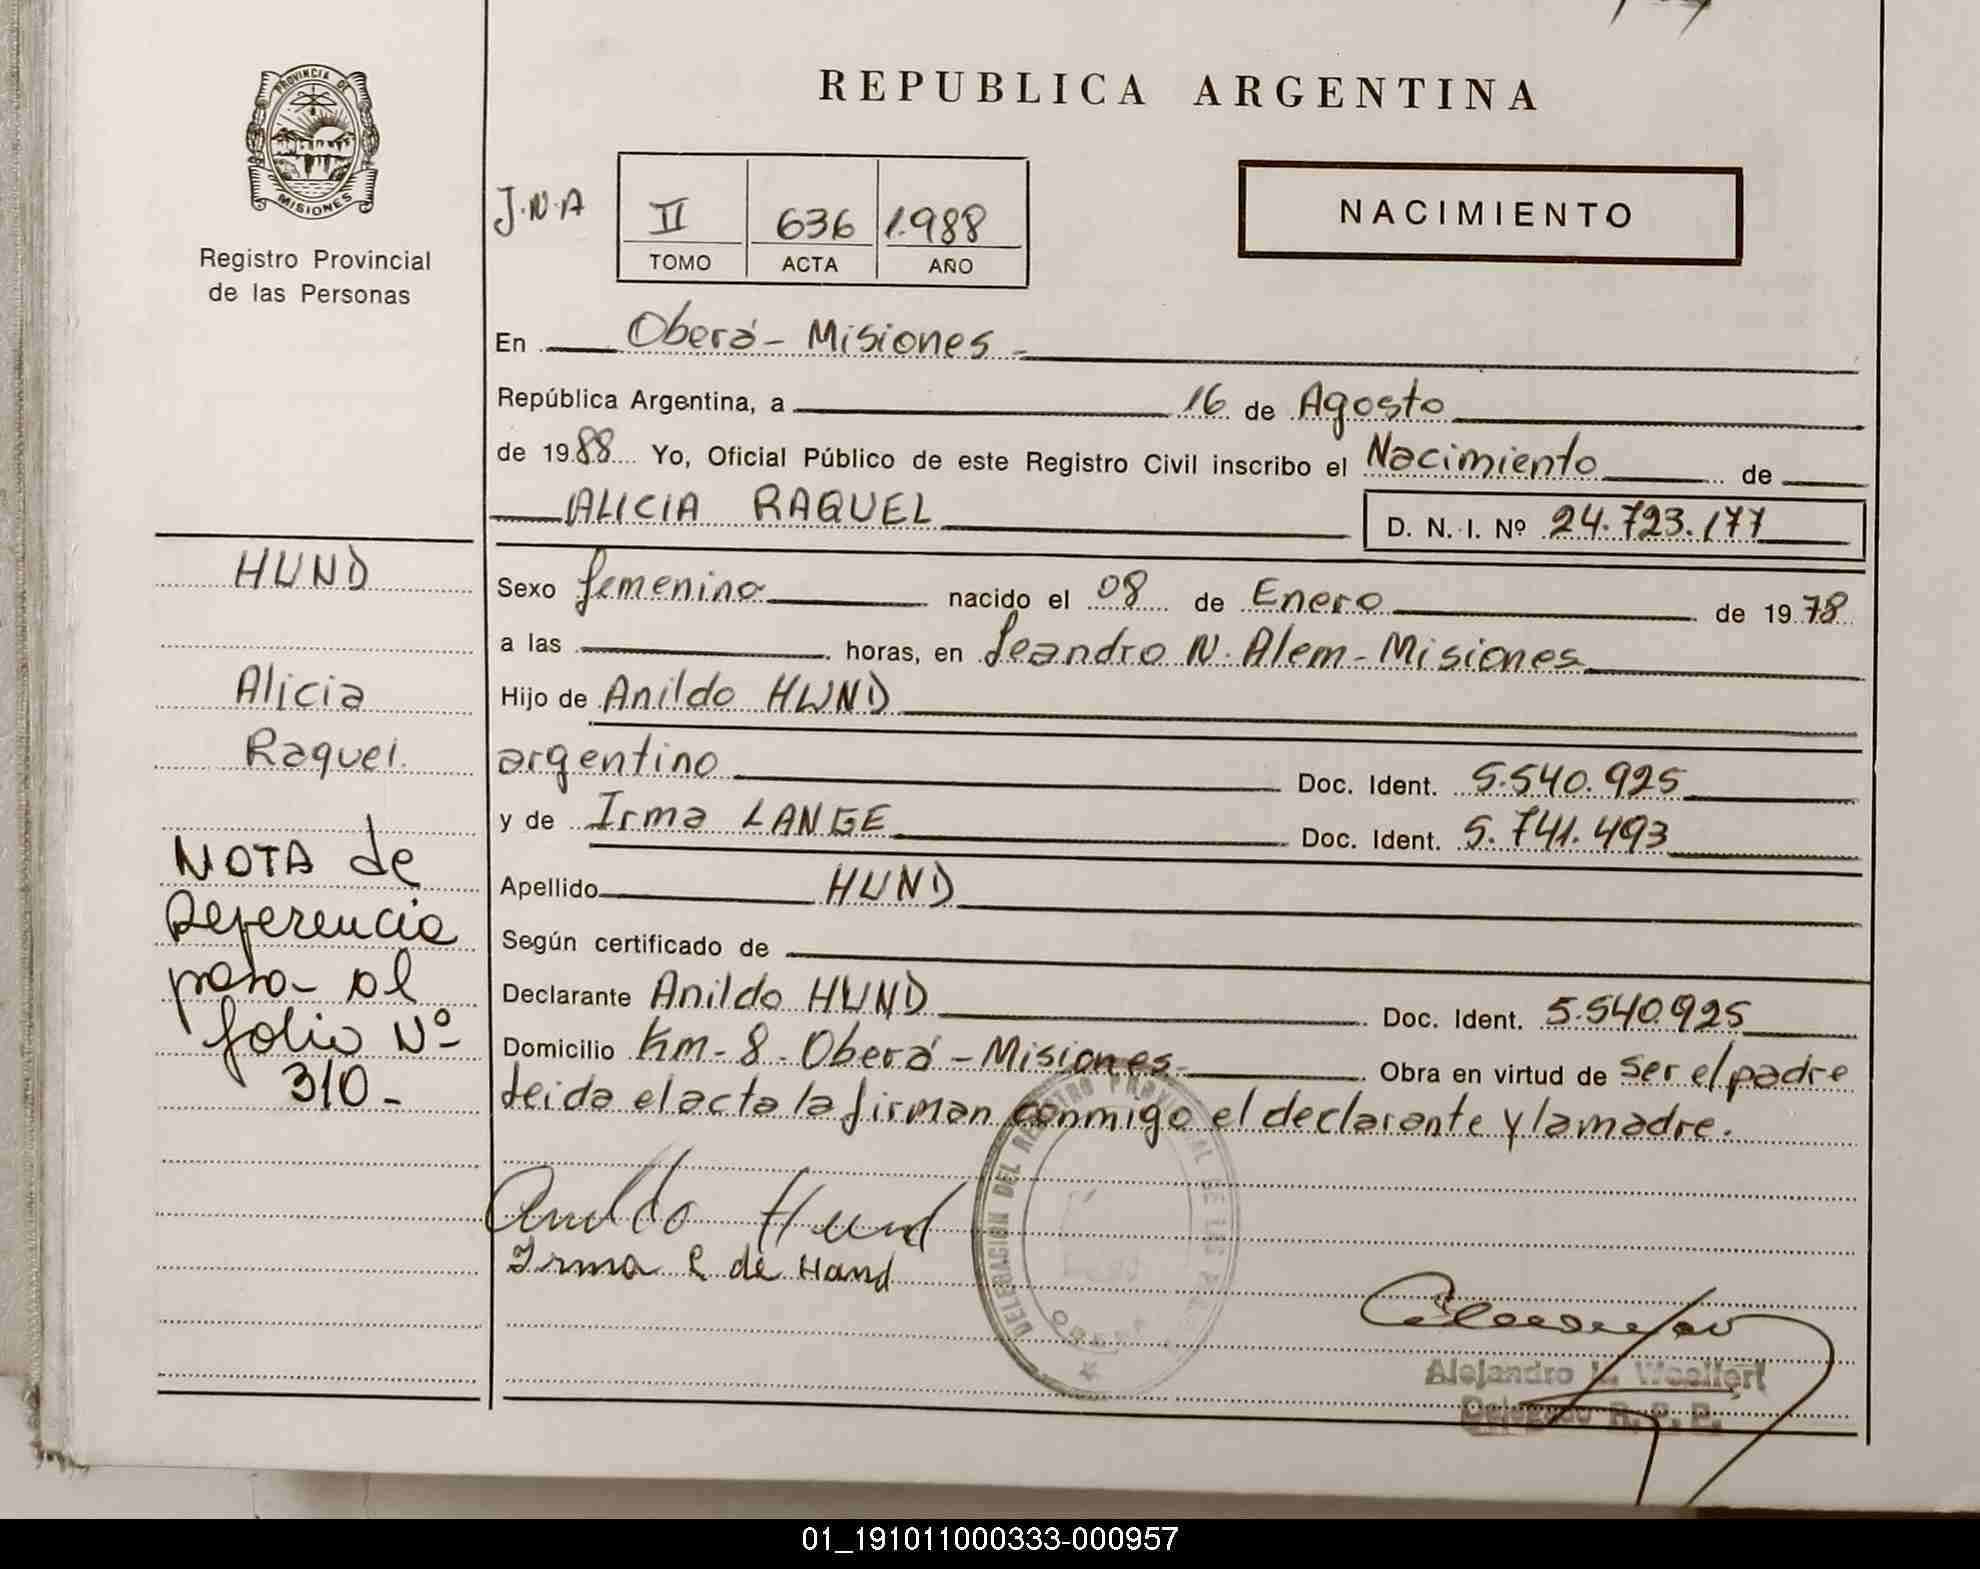 REPUBLICA ARGENTINA
PROVINCIA DE
MISIONES
Registro Provincial
de las Personas
J.N.A
II 636 1.988
TOMO ACTA AÑO
NACIMIENTO
En Oberá - Misiones -
República Argentina, a 16 de Agosto
de 1988 Yo, Oficial Público de este Registro Civil inscribo el Nacimiento de
ALICIA RAQUEL
D. N. I. Nº 24.723.177
Sexo femenino nacido el 08 de Enero de 1978
a las horas, en Leandro N. Alem - Misiones
Hijo de Anildo HUND
argentino Doc. Ident. 5.540.925
y de Irma LANGE Doc. Ident. 5.741.493
Apellido HUND
Según certificado de
Declarante Anildo HUND Doc. Ident. 5.540.925
Domicilio Km - 8 - Oberá - Misiones - Obra en virtud de ser el padre
Leida el acta la firman conmigo el declarante y la madre.
HUND
Alicia
Raquel.
NOTA de
Referencia
pasa - al
folio Nº
310 -
Anildo Hund
Irma L de Hand
DELEGACION DEL REGISTRO PROVINCIAL DE LAS
OBERA
Alejandro L. Woelfert
Delegado R. P. P.
01_191011000333-000957